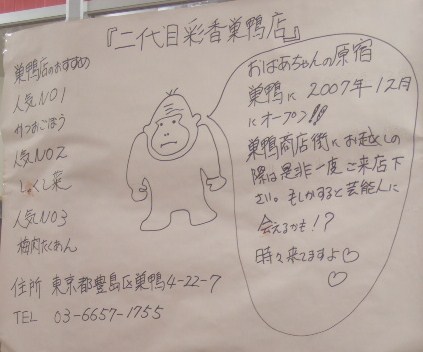 『二代目彩香巣鴨店』
巣鴨店のおすすめ
人気NO1
かつおごぼう
人気NO2
しゃくし菜
人気NO3
梅肉たくあん
住所 東京都豊島区巣鴨4-22-7
TEL 03-6657-1755
おばあちゃんの原宿
巣鴨に2007年12月
にオープン!!
巣鴨商店街にお越しの
際は是非一度ご来店下
さい。もしかすると芸能人に
会えるかも!?
時々来てますよ♡
♡